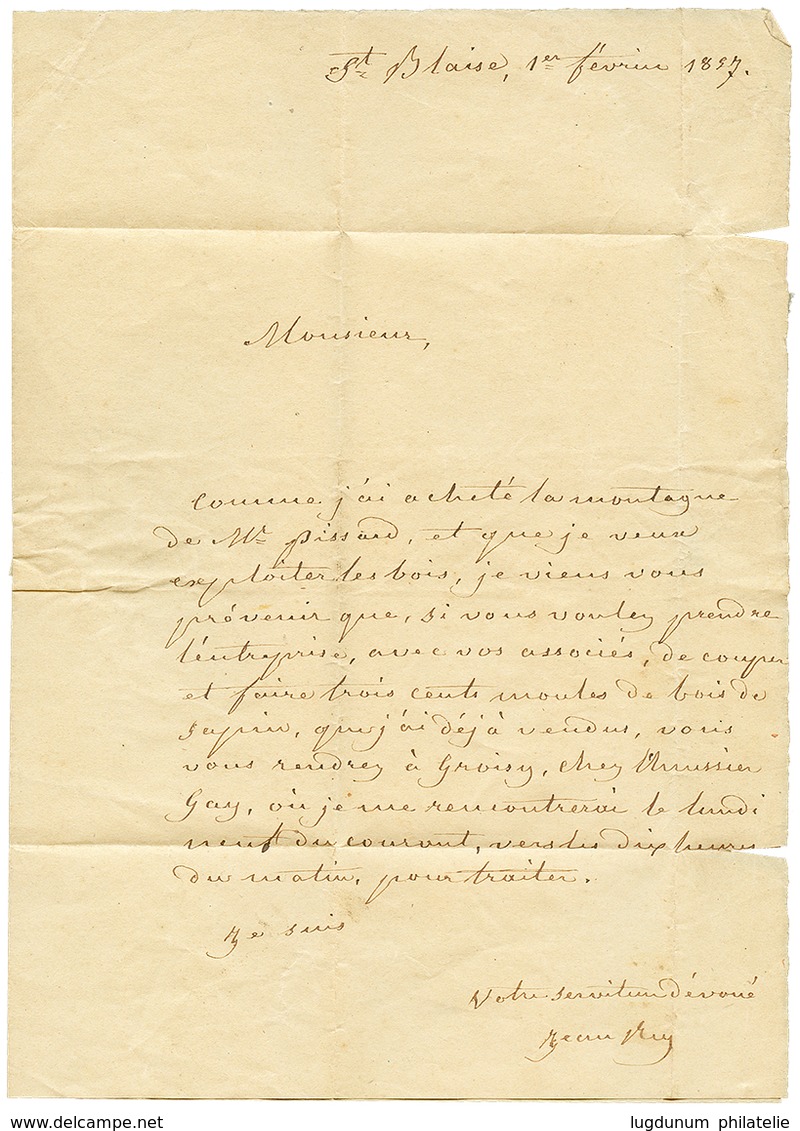 St Blaise, 1er février 1857.
Monsieur,
Comme j'ai acheté la montagne
de Mr Pissard, et que je veux
exploiter les bois, je viens vous
prévenir que, si vous voulez prendre
l'entreprise, avec vos associés, de couper
et faire trois cents moules de bois de
sapin, que j'ai déjà vendus, vous
vous rendrez à Groisy, chez l'huissier
Gay, où je me rencontrerai le lundi
neuf du courant, vers les dix heures
du matin, pour traiter.
Je suis
Votre serviteur dévoué
Jean
delcampe.net
lugdunum philatelie